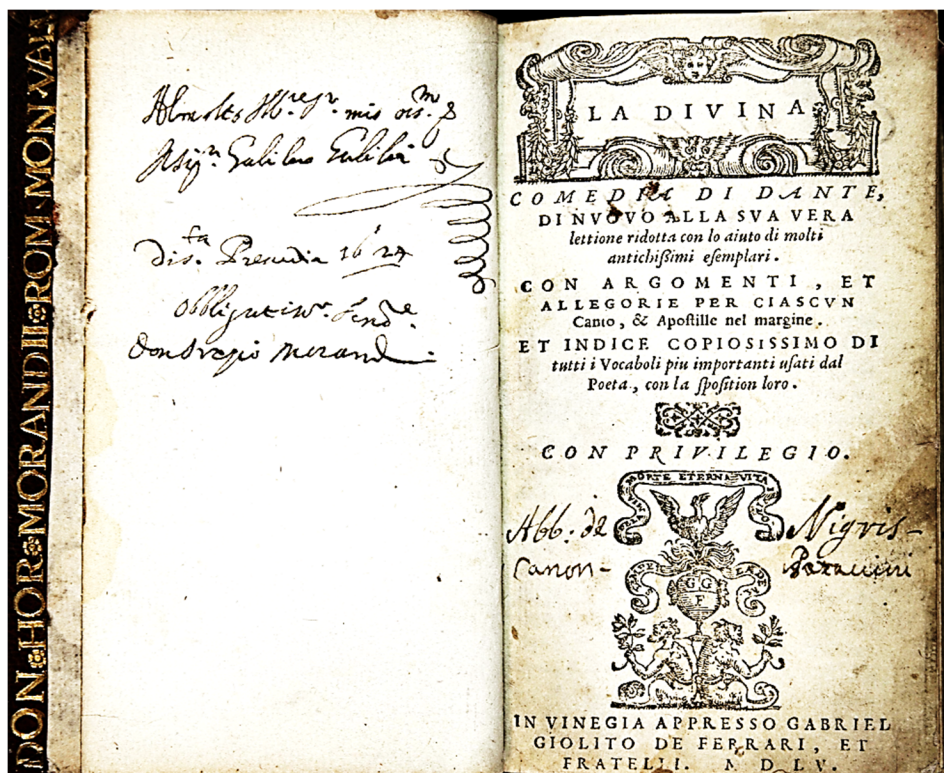 DON HOR MORANDII ROM MON VAL
Galileo Galilei
1624
Don Oragio Morandi
LA DIVINA
COMEDIA DI DANTE,
DI NVOVO ALLA SVA VERA
lettione ridotta con lo aiuto di molti
antichiſſimi eſemplari.
CON ARGOMENTI, ET
ALLEGORIE PER CIASCVN
Canto, & Apoſtille nel margine.
ET INDICE COPIOSISSIMO DI
tutti i Vocaboli piu importanti uſati dal
Poeta, con la ſpoſition loro.
CON PRIVILEGIO.
MORTE ETERNA VITA
Abb: de Nigris
Canon-
G G
F
IN VINEGIA APPRESSO GABRIEL
GIOLITO DE FERRARI, ET
FRATELLI. M D LV.